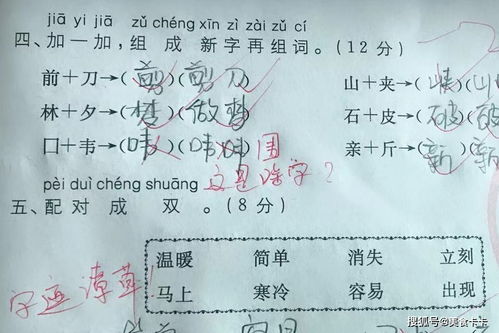 jiā yi jiā zǔ chéng xīn zì zài zǔ cí
四、加一加,组成新字再组词。(12分)
前+刀→(剪)(剪刀) 山+夹→(峡)(山
林+夕→(梦)(做梦) 石+皮→(破)(破
囗+韦→( 围 亲+斤→(新)(新
pèi duì chéng shuāng 这是啥字?
五、配对成双。(8分)
温暖 简单 消失 立刻
马上 寒冷 容易 出现
字迹潦草!
搜狐号@美食卡卡